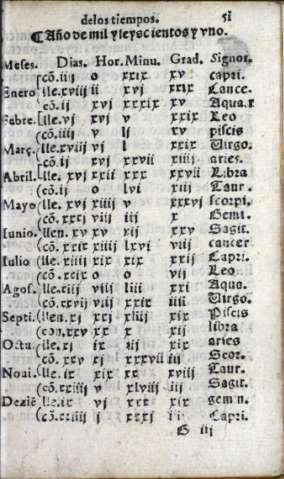 delos tiempos. 51
¶Año de mil y seyscientos y vno.
Meses. Dias. Hor. Minu. Grad. Signos.
(cõ. iij o xxix xv capri.
Enero (lle. xviij ij xvj xxix Cance.
(cõ. ij xvj xxxix xv Aqua.r
Febre. (lle. vj xvj v xxix Leo
(cõ. iiij v lj xv piscis
Març. (lle. xviij vj l xxix Uirgo.
(cõ. ij xvj xxvij xiiij aries.
Abril. (lle. xvj xxij xxx xxvij Libra
(cõ. ij o lvj xiij Taur.
Mayo (lle. xvj xiiij v xxxvj scorpi.
(cõ. xxxj viij iij x Gemi.
Iunio. (llen. xv xv xij xxv Sagit.
(cõ. xxix xiiij lxvj viij cancer
Iulio (lle. xiiij xix xiiij Capri.
(cõ. xxix o o vij Leo
Agos. (lle. xiij viij liij xxj Aqua.
(cõ. xxvij viij xxix iiij Uirgo.
Septi. (llen. xj xxj xliij xix Piscis
(con. xxv xx x xij libra
Octu. (lle. xj ix iij xix aries
(cõ. xxv xj xxxvij iij Scor.
Noui. (lle. ix xix xx xviij Taur.
(cõ. xxiiij v xlviij iij Sagit.
Deziẽ (lle. ix vj xxx xix gemin.
(cõ. xxiiij j xxxj ij Capri.
G iij